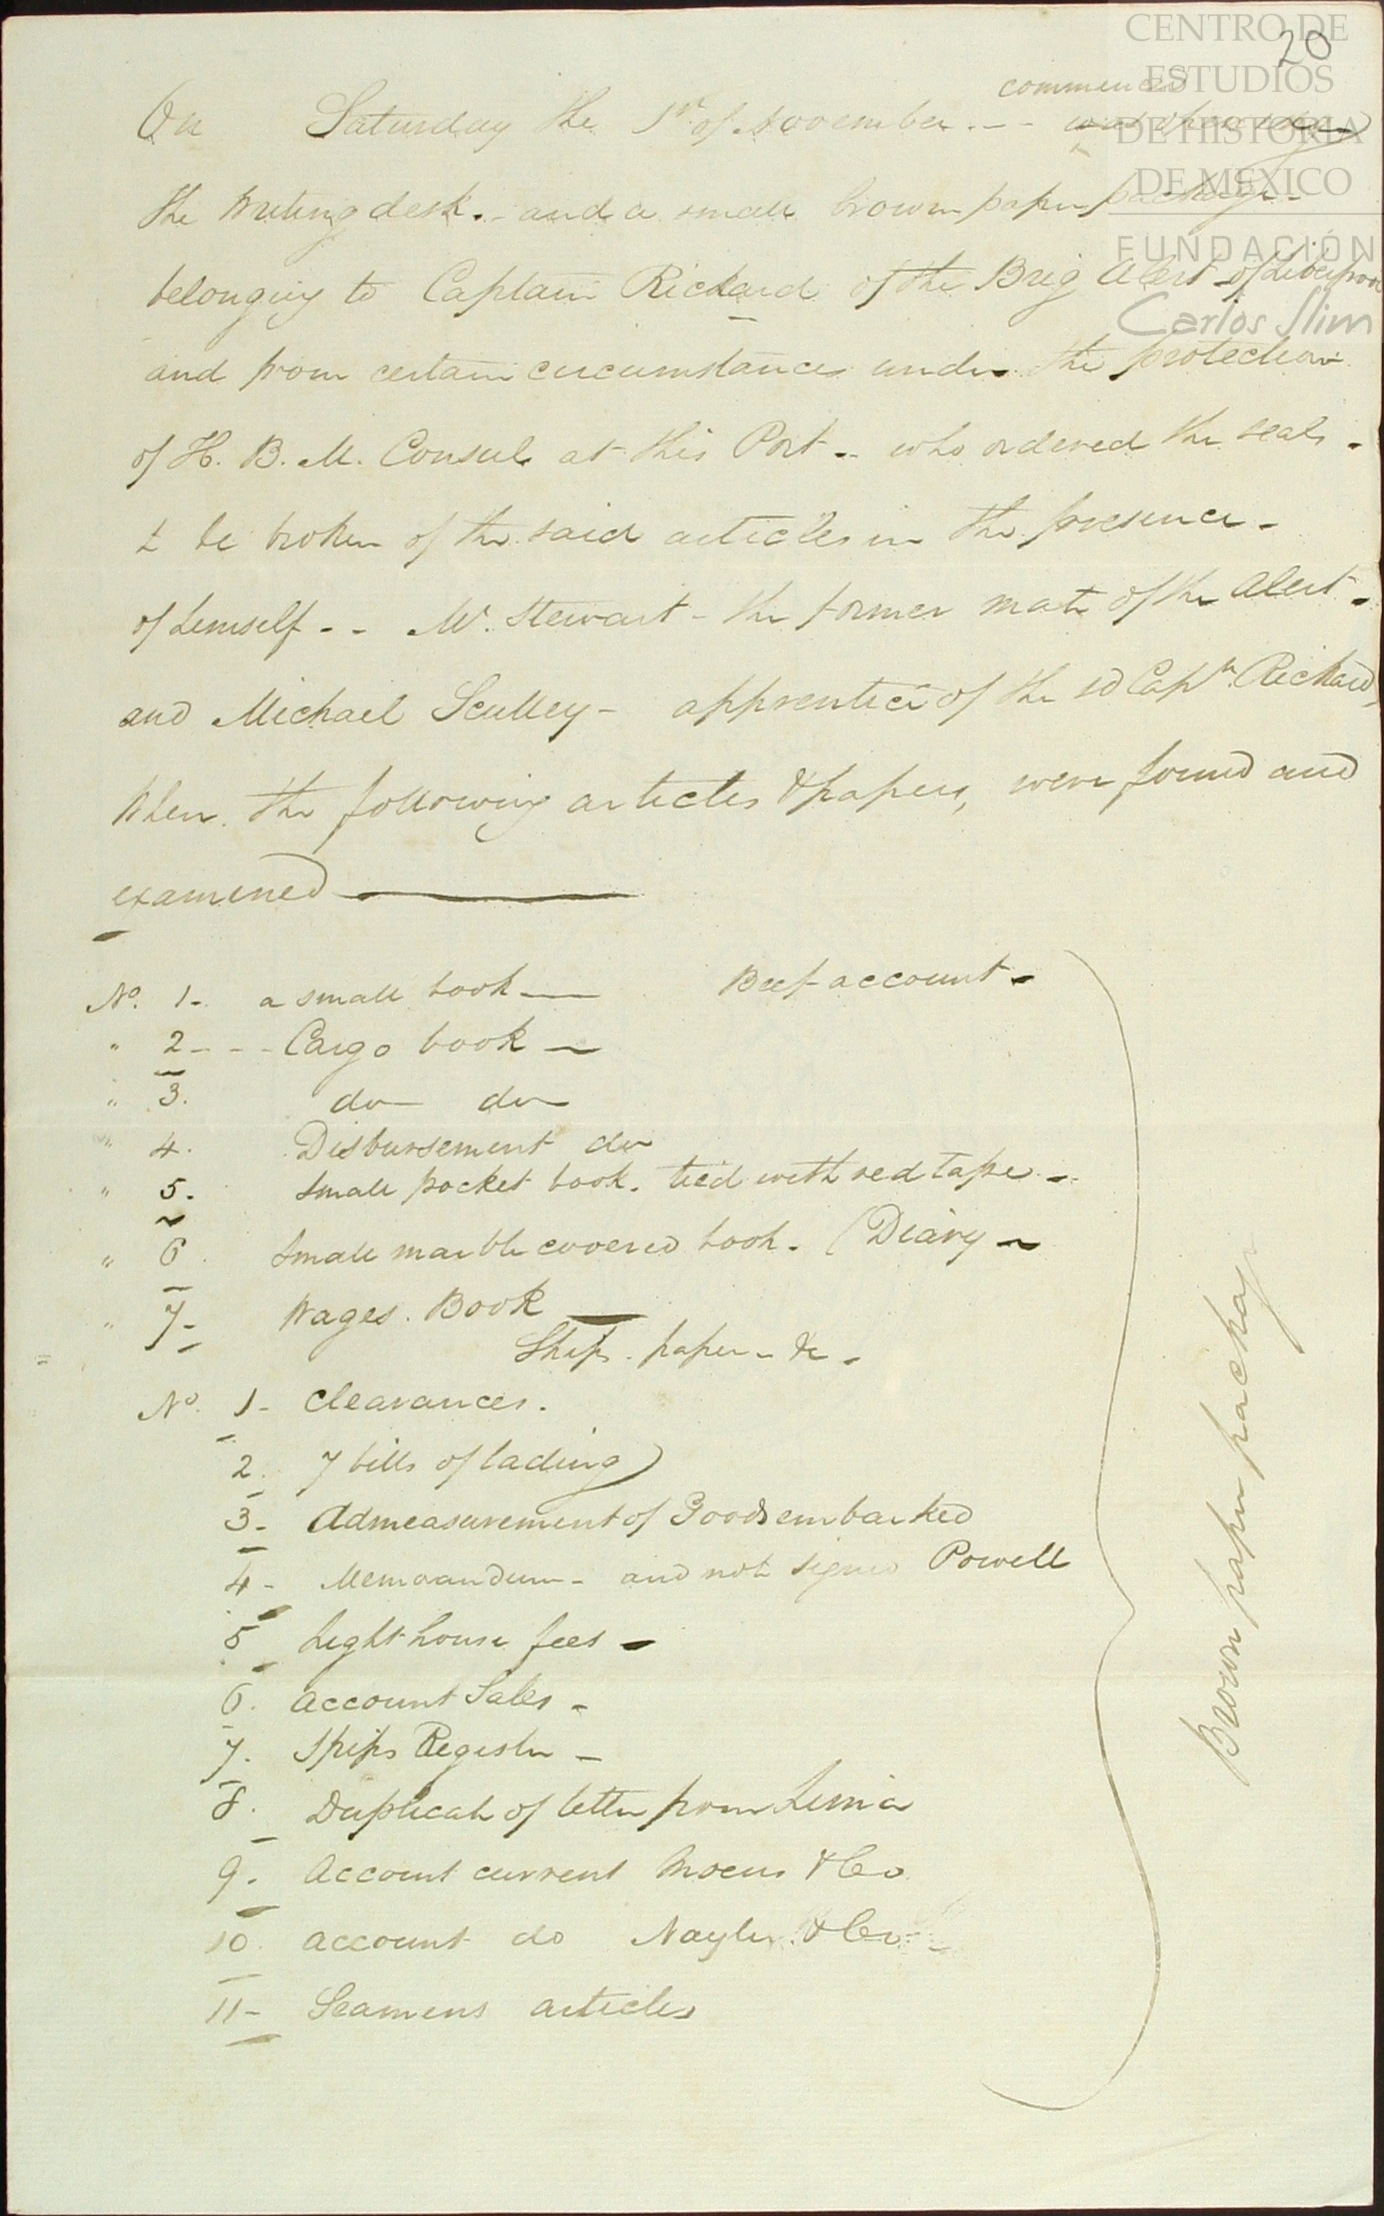 20
CENTRO DE
ESTUDIOS
DE HISTORIA
DE MEXICO
FUNDACIÓN
Carlos Slim
commenced
On Saturday the 1st of November. -- was
the Writing desk. - and a small brown paper package -
belonging to Captain Rickard of the Brig Alert of Liverpool
and from certain circumstances under the protection
of H. B. M. Consul at this Port - who ordered the seals -
to be broken of the said articles in the presence -
of himself - - Mr. Stewart - the former mate of the Alert -
and Michael Sculley - apprentice of the sd Captn. Rickard,
When the following articles & papers, were found and
examined
No. 1 - a small book — Beef account -
" 2 - - - Cargo book —
" 3. do do
" 4. Disbursement do
" 5. Small pocket book. tied with red tape -
" 6. Small marble covered book. (Diary -
" 7 - Wages. Book —
Ships. papers - &c -
No. 1 - Clearances.
2. 7 bills of lading
3 - Admeasurement of Goods embarked
4 - Memorandum - and not signed Powell
5 Lighthouse fees -
6. Account Sales -
7. Ships Register -
8. Duplicate of letter from Lima
9. Account current & Co
10. account do Naylor & Co -
11 - Seamens articles
Brown paper package